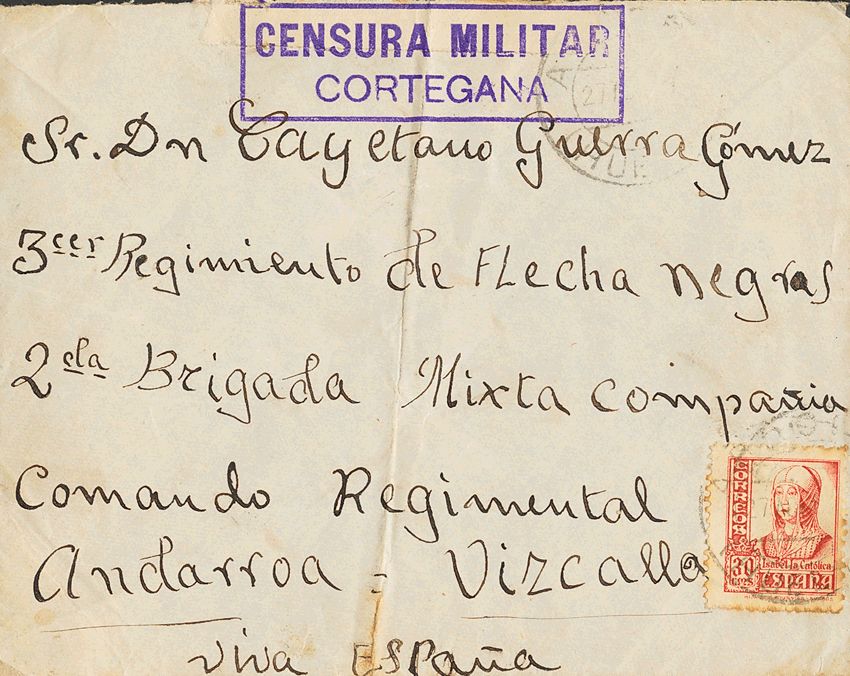 CENSURA MILITAR
CORTEGANA
Sr. Dn Cayetano Guerra Gómez
3cer Regimiento de Flecha negras
2da Brigada Mixta compañia
Comando Regimental
Andarroa = Vizcalla
viva España
CORREOS
30
CTS
Isabel la Católica
ESPAÑA